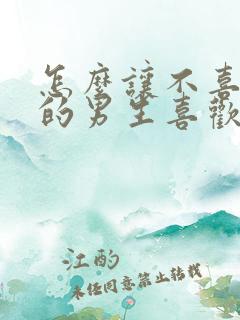 怎麼讓不喜
的男生喜歡
江酌
未任同意禁止转载